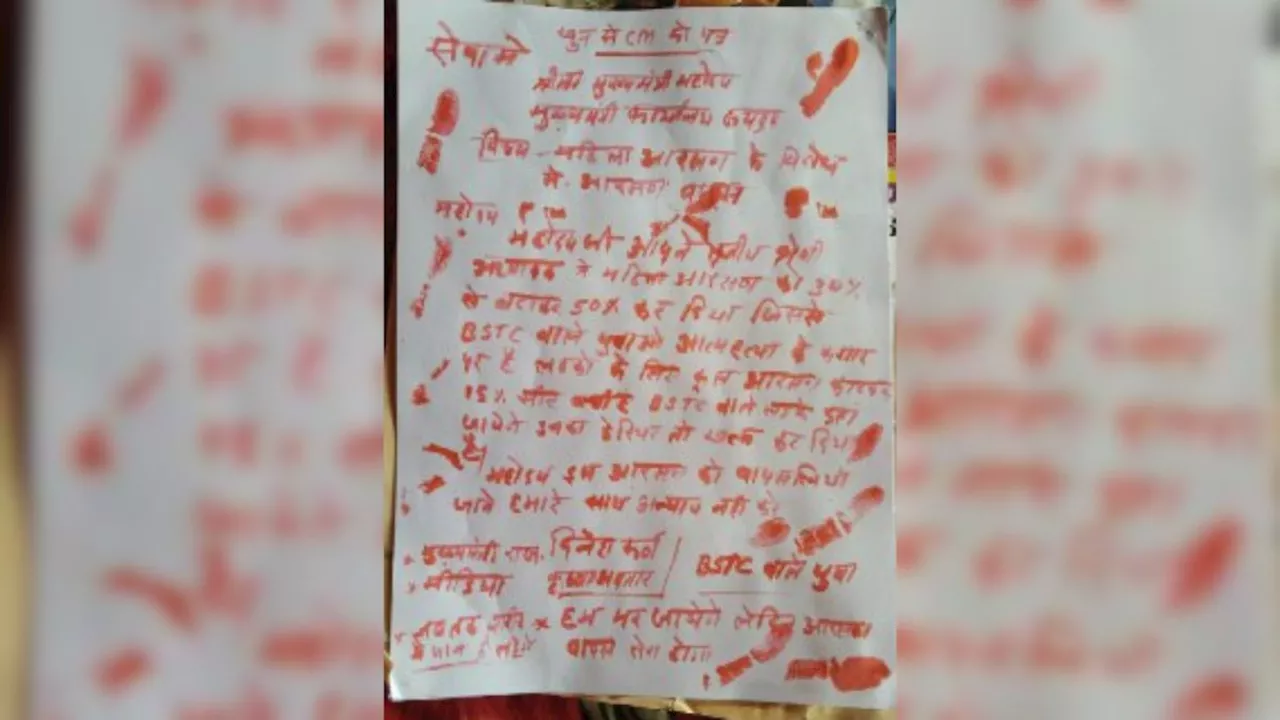 खुन से CM को पत्र
सेवा मे
श्रीमान मुख्यमंत्री महोदय
मुख्यमंत्री कार्यालय जयपुर
विषय - महिला आरक्षण के विरोध
मे आरक्षण वापस
महोदय
महोदय जी आपने तृतीय श्रेणी
अध्यापक मे महिला आरक्षण को 30%
से बढाकर 50% कर दिया जिससे
BSTC वाले युवाओ आत्महत्या के कगार
पर है लडको के लिए कुल आरक्षण
15% और BSTC वाले लडके कहा
जायेगे इनका केरियर तो खत्म कर दिया
है
महोदय इस आरक्षण को वापस लिया
जावे हमारे साथ अन्याय नही करे
मुख्यमंत्री राज. दिनेश BSTC वाले युवा
मीडिया
हम मर जायेगे लेकिन आरक्षण
वापस लेना होगा